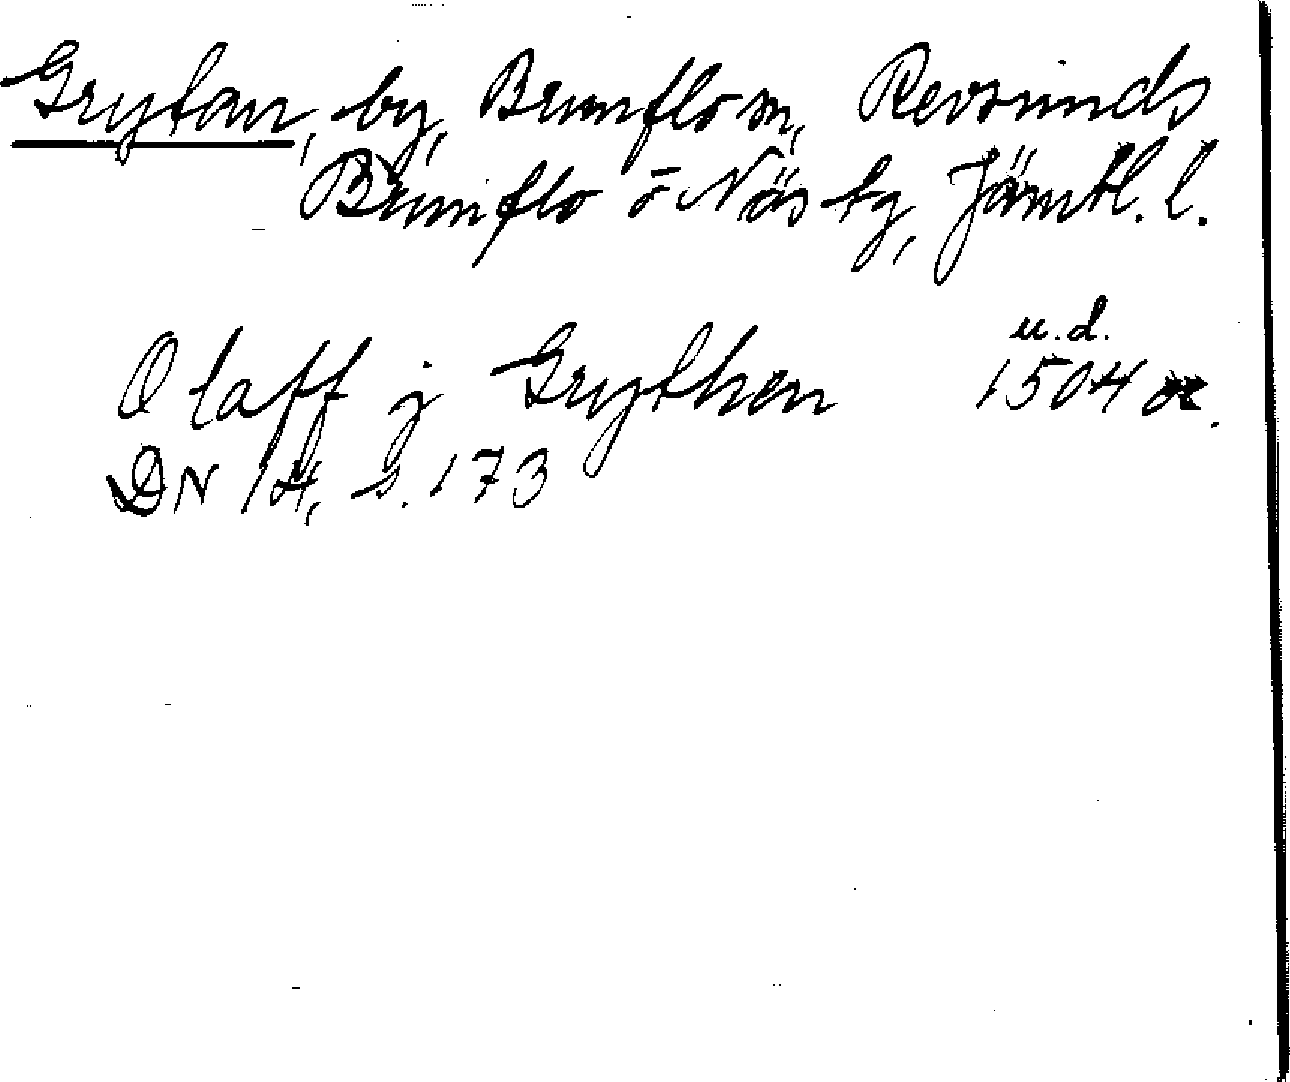 Grytan, by, Brunflo sn, Revsunds
Brunflo o Näs tg, Jämtl. l.
u.d.
Olaff j Grythen 1504 or.
DN 14, s. 173